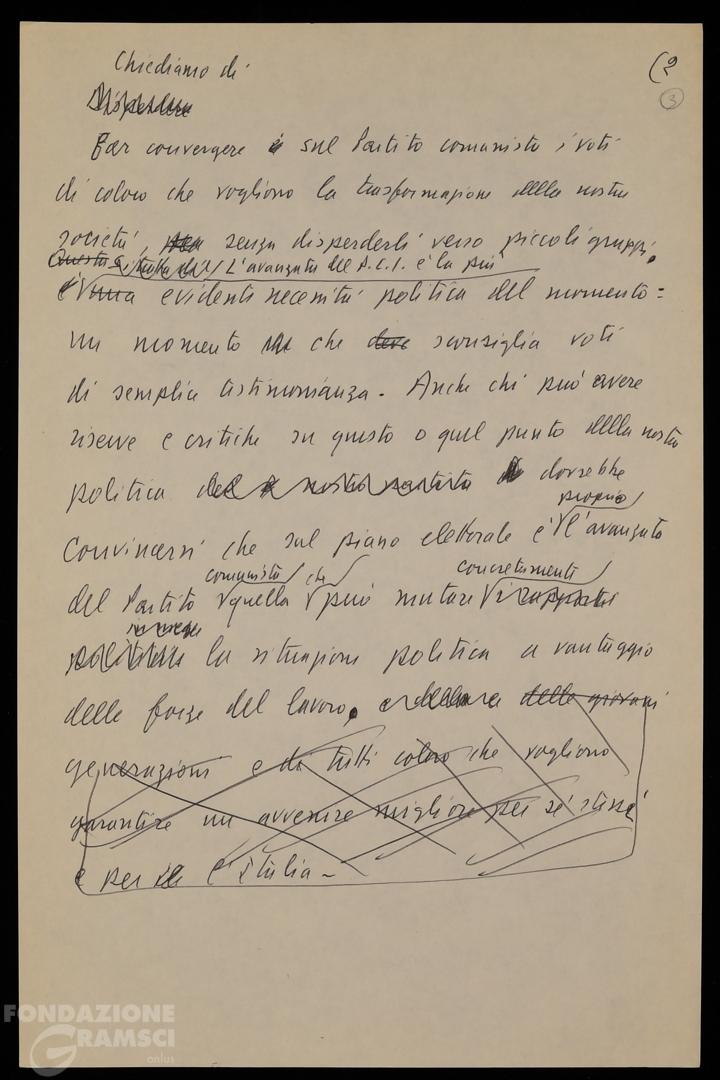 Chiediamo di
(2
3
Disperdere
Far convergere sul Partito comunista i voti
di coloro che vogliono la trasformazione della nostra
società, senza disperderli verso piccoli gruppi.
Questa L'avanzata del P.C.I. è la più
è una evidente necessità politica del momento:
un momento che deve sconsiglia voti
di semplice testimonianza. Anche chi può avere
riserve e critiche su questo o quel punto della nostra
politica del nostro partito dovrebbe
proprio
convincersi che sul piano elettorale è l'avanzata
comunista che concretamente
del Partito quella può mutare i rapporti
politici la situazione politica a vantaggio
delle forze del lavoro, delle giovani
generazioni e di tutti coloro che vogliono
garantire un avvenire migliore per sé stessi
e per l'Italia.
FONDAZIONE
GRAMSCI
onlus